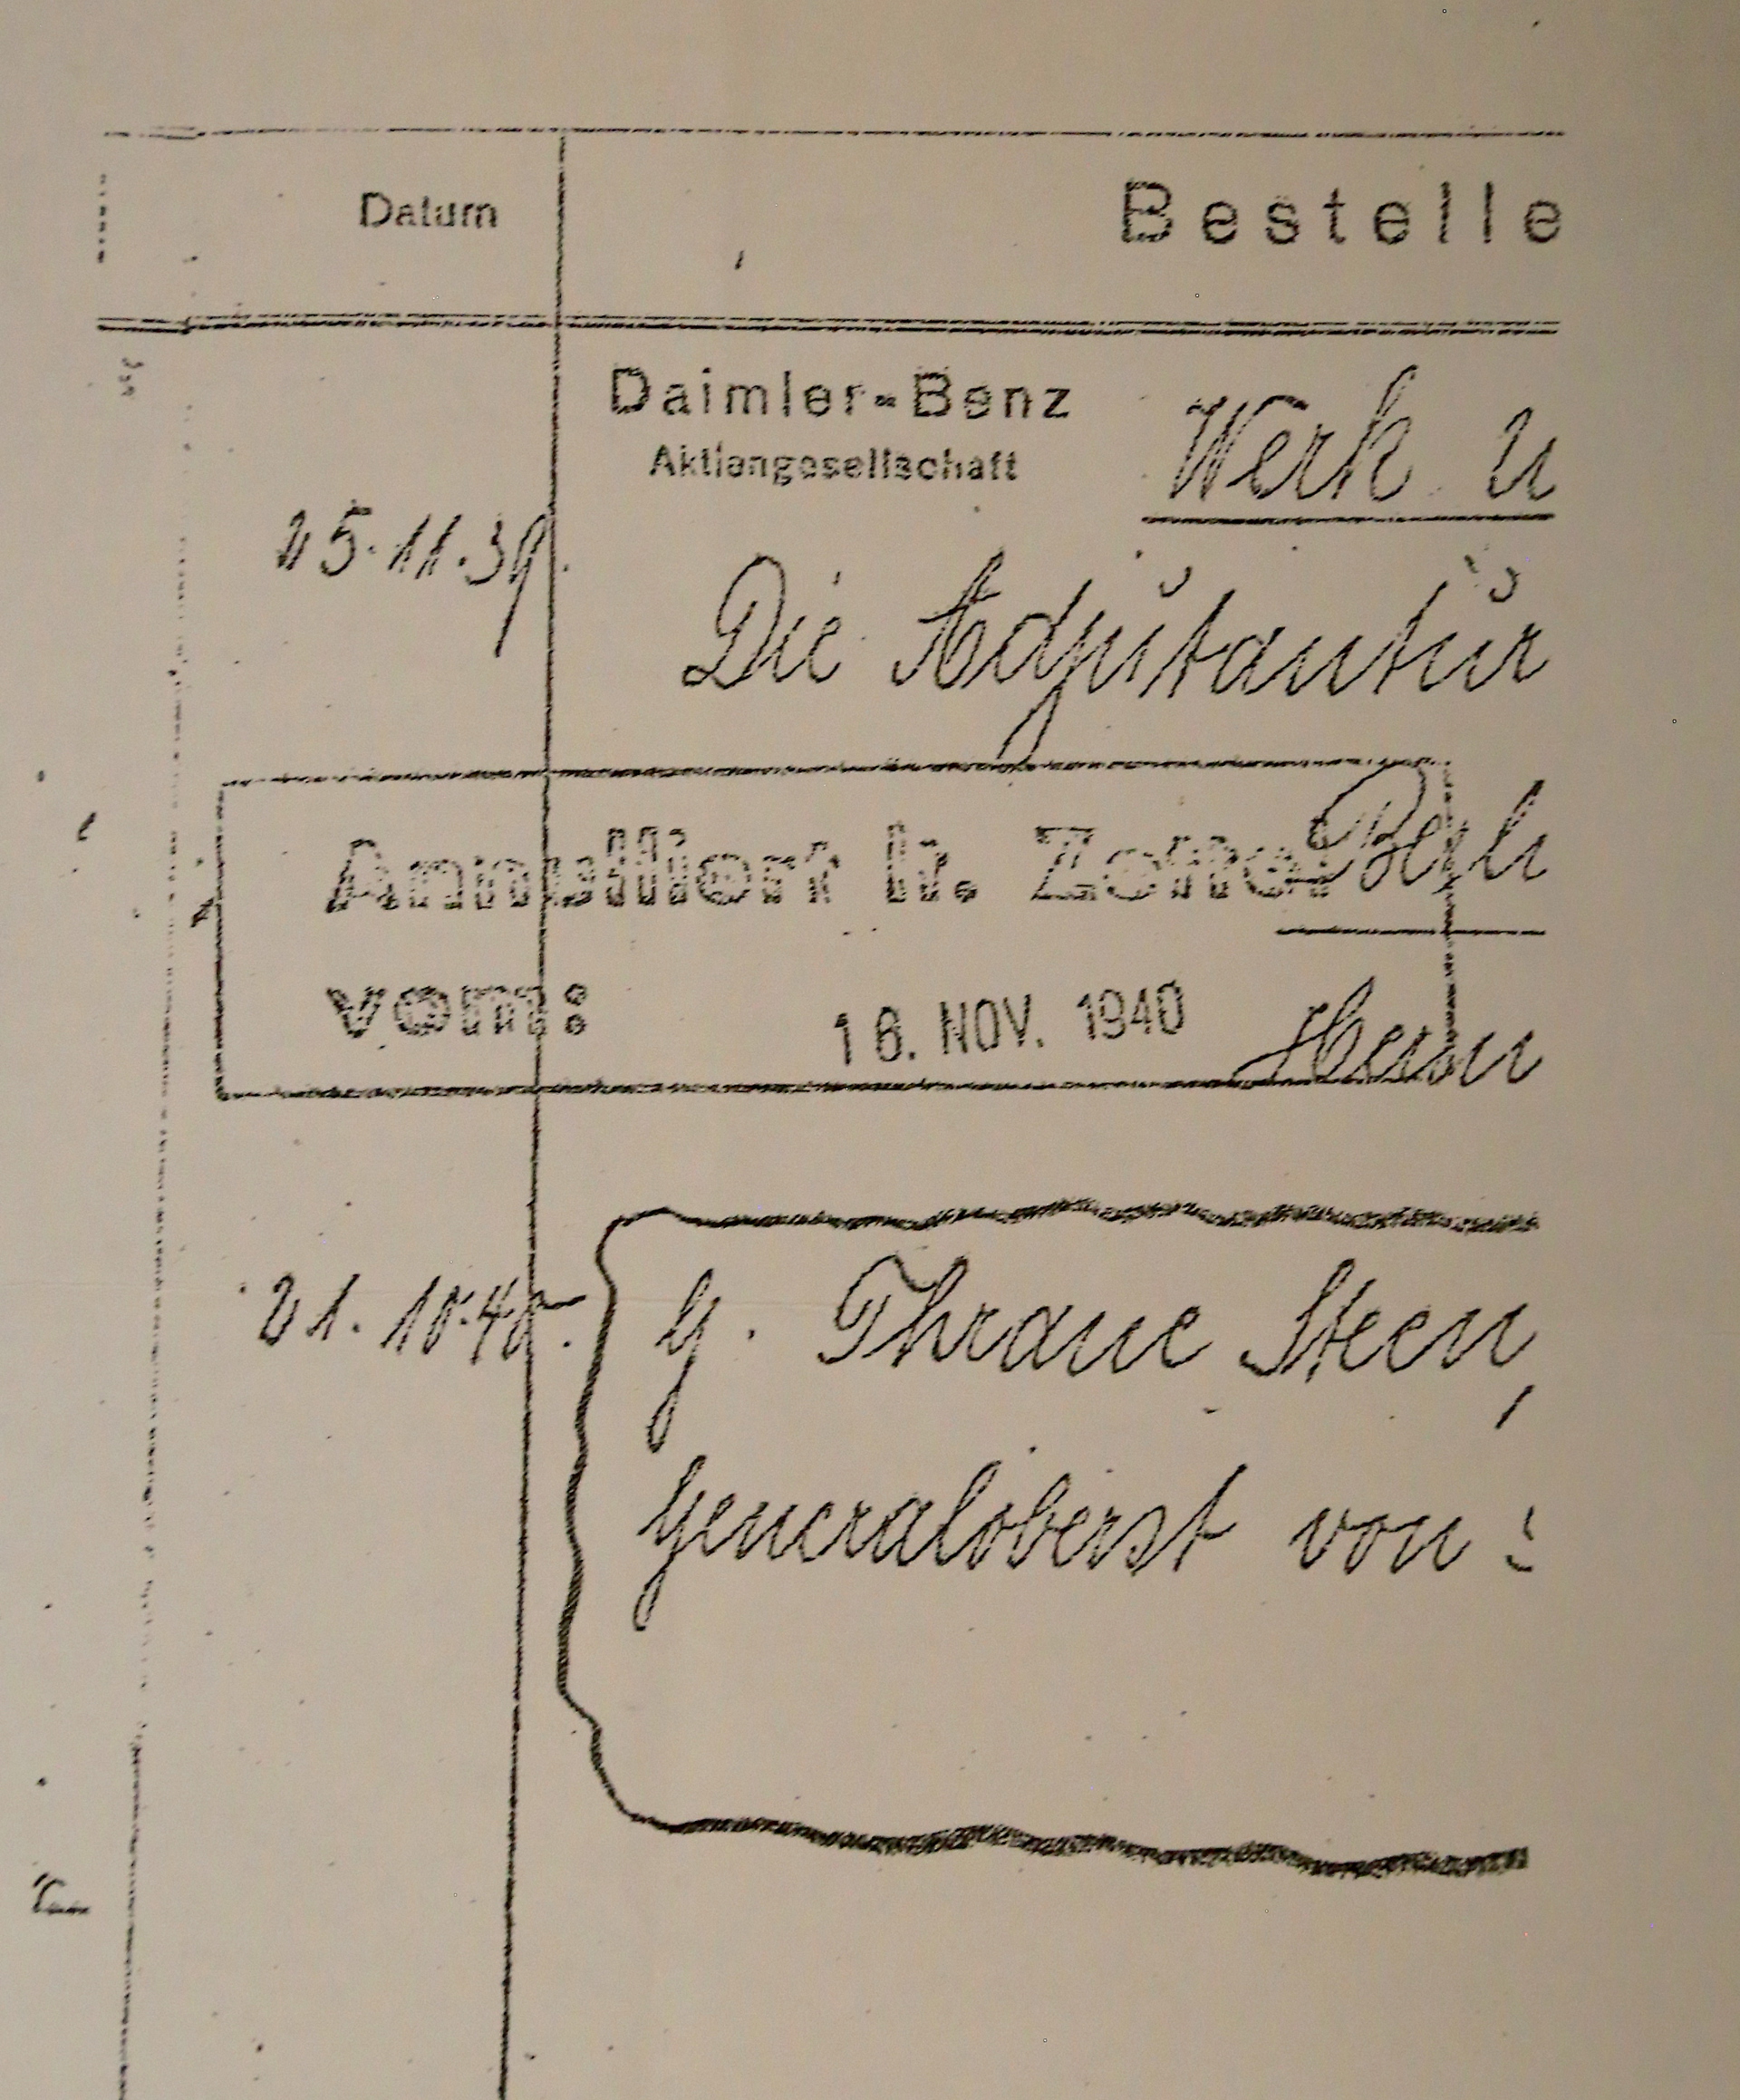 Datum Bestelle
Daimler-Benz Werk u
Aktiengesellschaft
25.11.39.
Die Adjutantur
Annulliert lt. Berli
vom: 16. NOV. 1940 Herrn
21. 10.40. G. Thrane Steen,
Generaloberst von